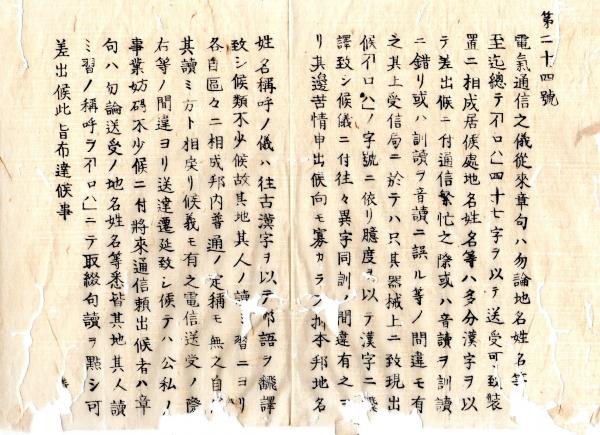 第二十四號
電氣通信之儀從來章句ハ勿論地名姓名等
至迄總テ不ロハ四十七字ヲ以テ送受可致装
置ニ相成居候處地名姓名等ハ多分漢字ヲ以
テ差出候ニ付通信繁忙之際或ハ音讀ヲ訓讀
ニ錯リ或ハ訓讀ヲ音讀ニ誤ル等ノ間違モ有
之其上受信局ニ於テハ只其器械上ニ致現出
候不ロハノ字號ニ依リ臆度ヲ以テ漢字ニ飜
譯致シ候儀ニ付往々異字同訓ノ間違有之ヨ
リ其邊苦情申出候向モ寡カラス抑本邦地名
姓名稱呼ノ儀ハ往古漢字ヲ以テ邦語ヲ飜譯
致シ候類不少候故其地其人ノ讀ミ習ニヨリ
各自區々ニ相成邦内普通ノ定稱モ無之自
其讀ミ方ト相戻リ候義モ有之電信送受ノ際
右等ノ間違ヨリ送達遷延致シ候テハ公私ノ
事業妨碍不少候ニ付將來通信頼出候者ハ章
句ハ勿論送受ノ地名姓名等悉皆其地其人讀
ミ習ノ稱呼ヲ不ロハニテ取綴句讀ヲ點シ可
差出候此旨布達候事